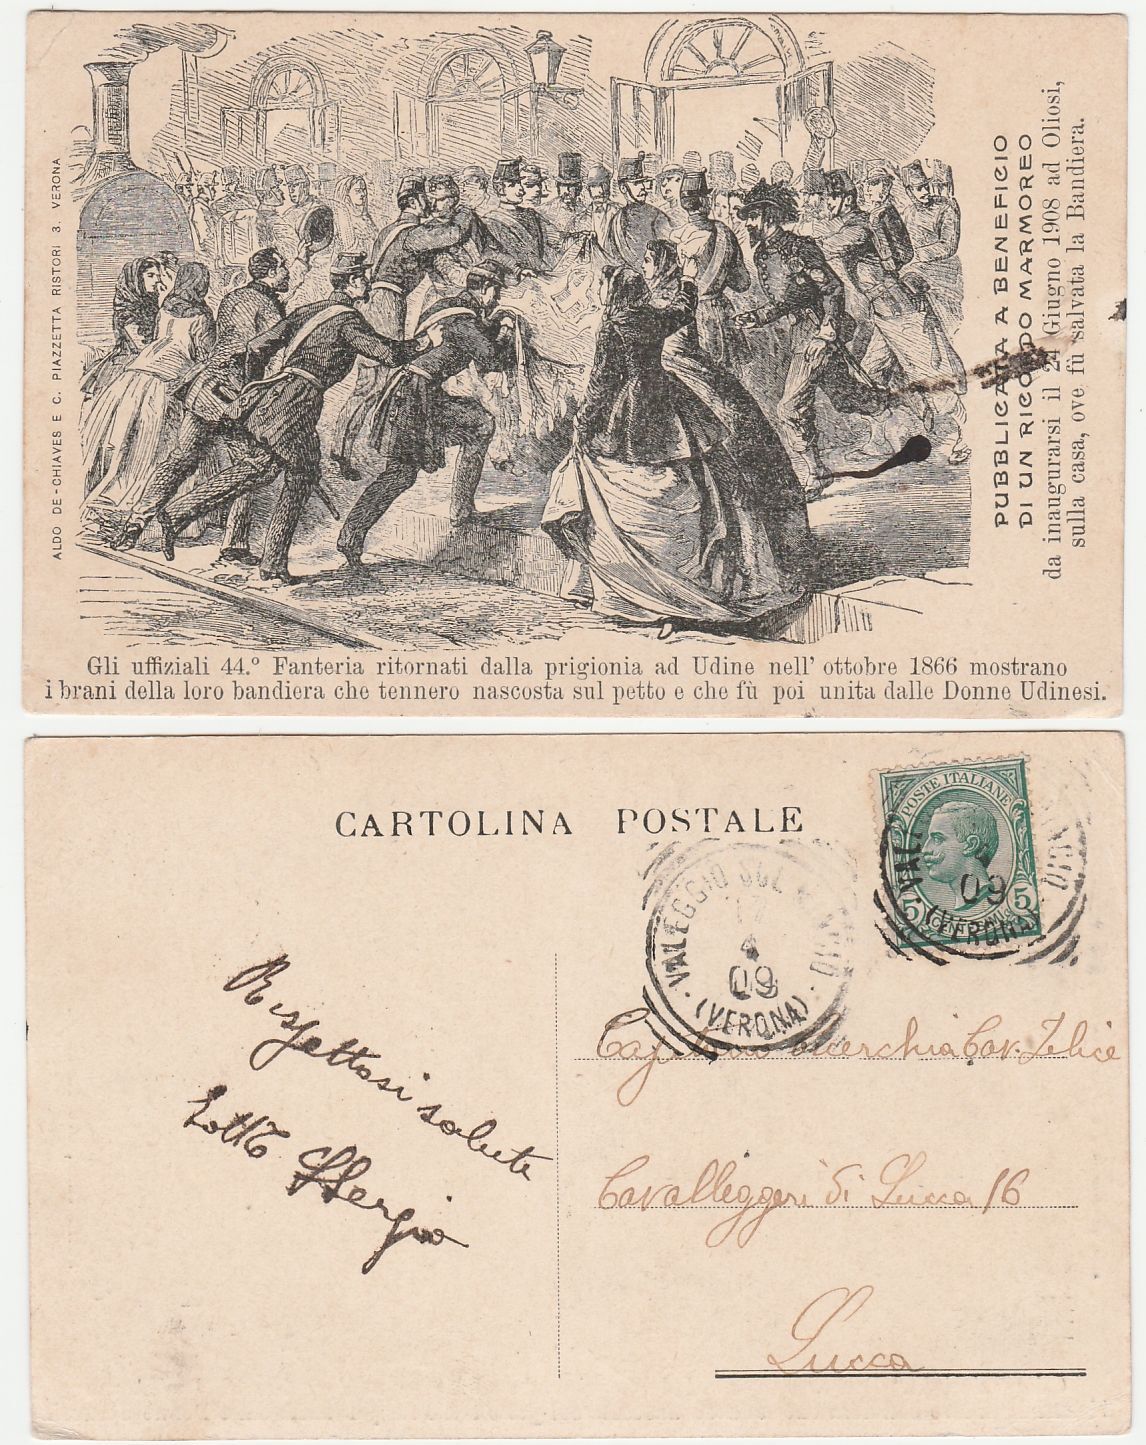 ALDO DE-CHIAVES E C. PIAZZETTA RISTORI 3. VERONA
PUBBLICATA A BENEFICIO
DI UN RICORDO MARMOREO
da inaugurarsi il 24 Giugno 1908 ad Oliosi,
sulla casa, ove fù salvata la Bandiera.
Gli uffiziali 44.º Fanteria ritornati dalla prigionia ad Udine nell' ottobre 1866 mostrano
i brani della loro bandiera che tennero nascosta sul petto e che fù poi unita dalle Donne Udinesi.
CARTOLINA POSTALE
POSTE ITALIANE
5 CENTESIMI 5
VALEGGIO SUL MINCIO
17
4
09
(VERONA)
VAL MINCIO
09
(VERONA)
Rispettosi saluti
Sergio
Cav. Felice
Cavalleggeri di Lucca 16
Lucca